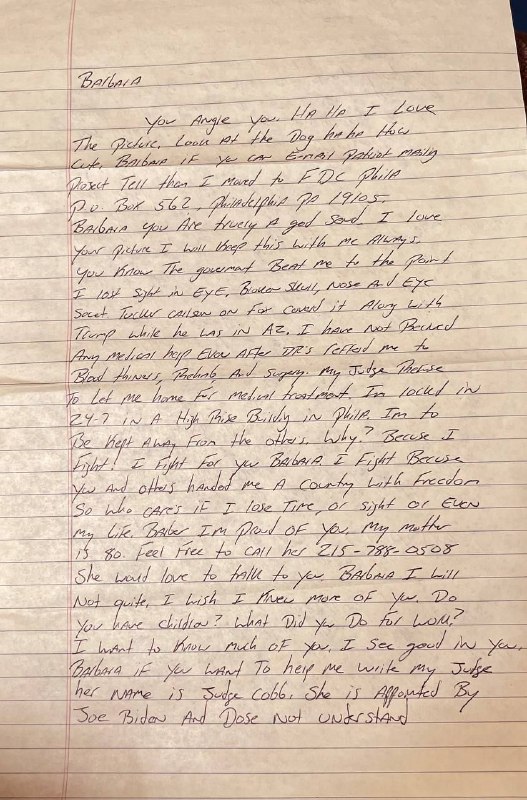 Barbara
You Angle you. HA HA I Love
The picture. Look At the Dog haha How
cute. Barbara if you can Email Patriot maily
Posect Tell than I moved to FDC Phila
P.O. Box 562, Philadelphia PA 19105.
Barbara you Are truely A god send. I Love
your picture I will keep this with me Always.
You Know The goverment Beat me to the point
I lost sight in Eye, Broken Skull, Nose And Eye
Socet Tucker carlson on Fox coverd it Along with
Trump while he was in AZ. I have Not Recived
Any medical help Even After DR's reffed me to
Blood thiners, And Surgery. My Judge
To let me home for medical treatment. I'm locked in
24-7 in A High Rise Buildy in Phila. I'm to
Be Kept Away From the others. Why? Becuse I
Fight! I Fight For you Barbara. I Fight Becuse
you And others handed me A country with Freedom
So who cares if I lose Time, or sight or Even
my Life. Barber I'm Proud of you. My mother
is 80. Feel Free to call her 215-788-0508
She would love to talk to you Barbara I will
Not quite. I wish I Knew more of you. Do
you have children? What Did you Do for work?
I want to Know much of you. I See good in you.
Barbara if you want To help me write my Judge
her name is Judge Cobb. She is Appointed By
Joe Bidon And Dose Not understand